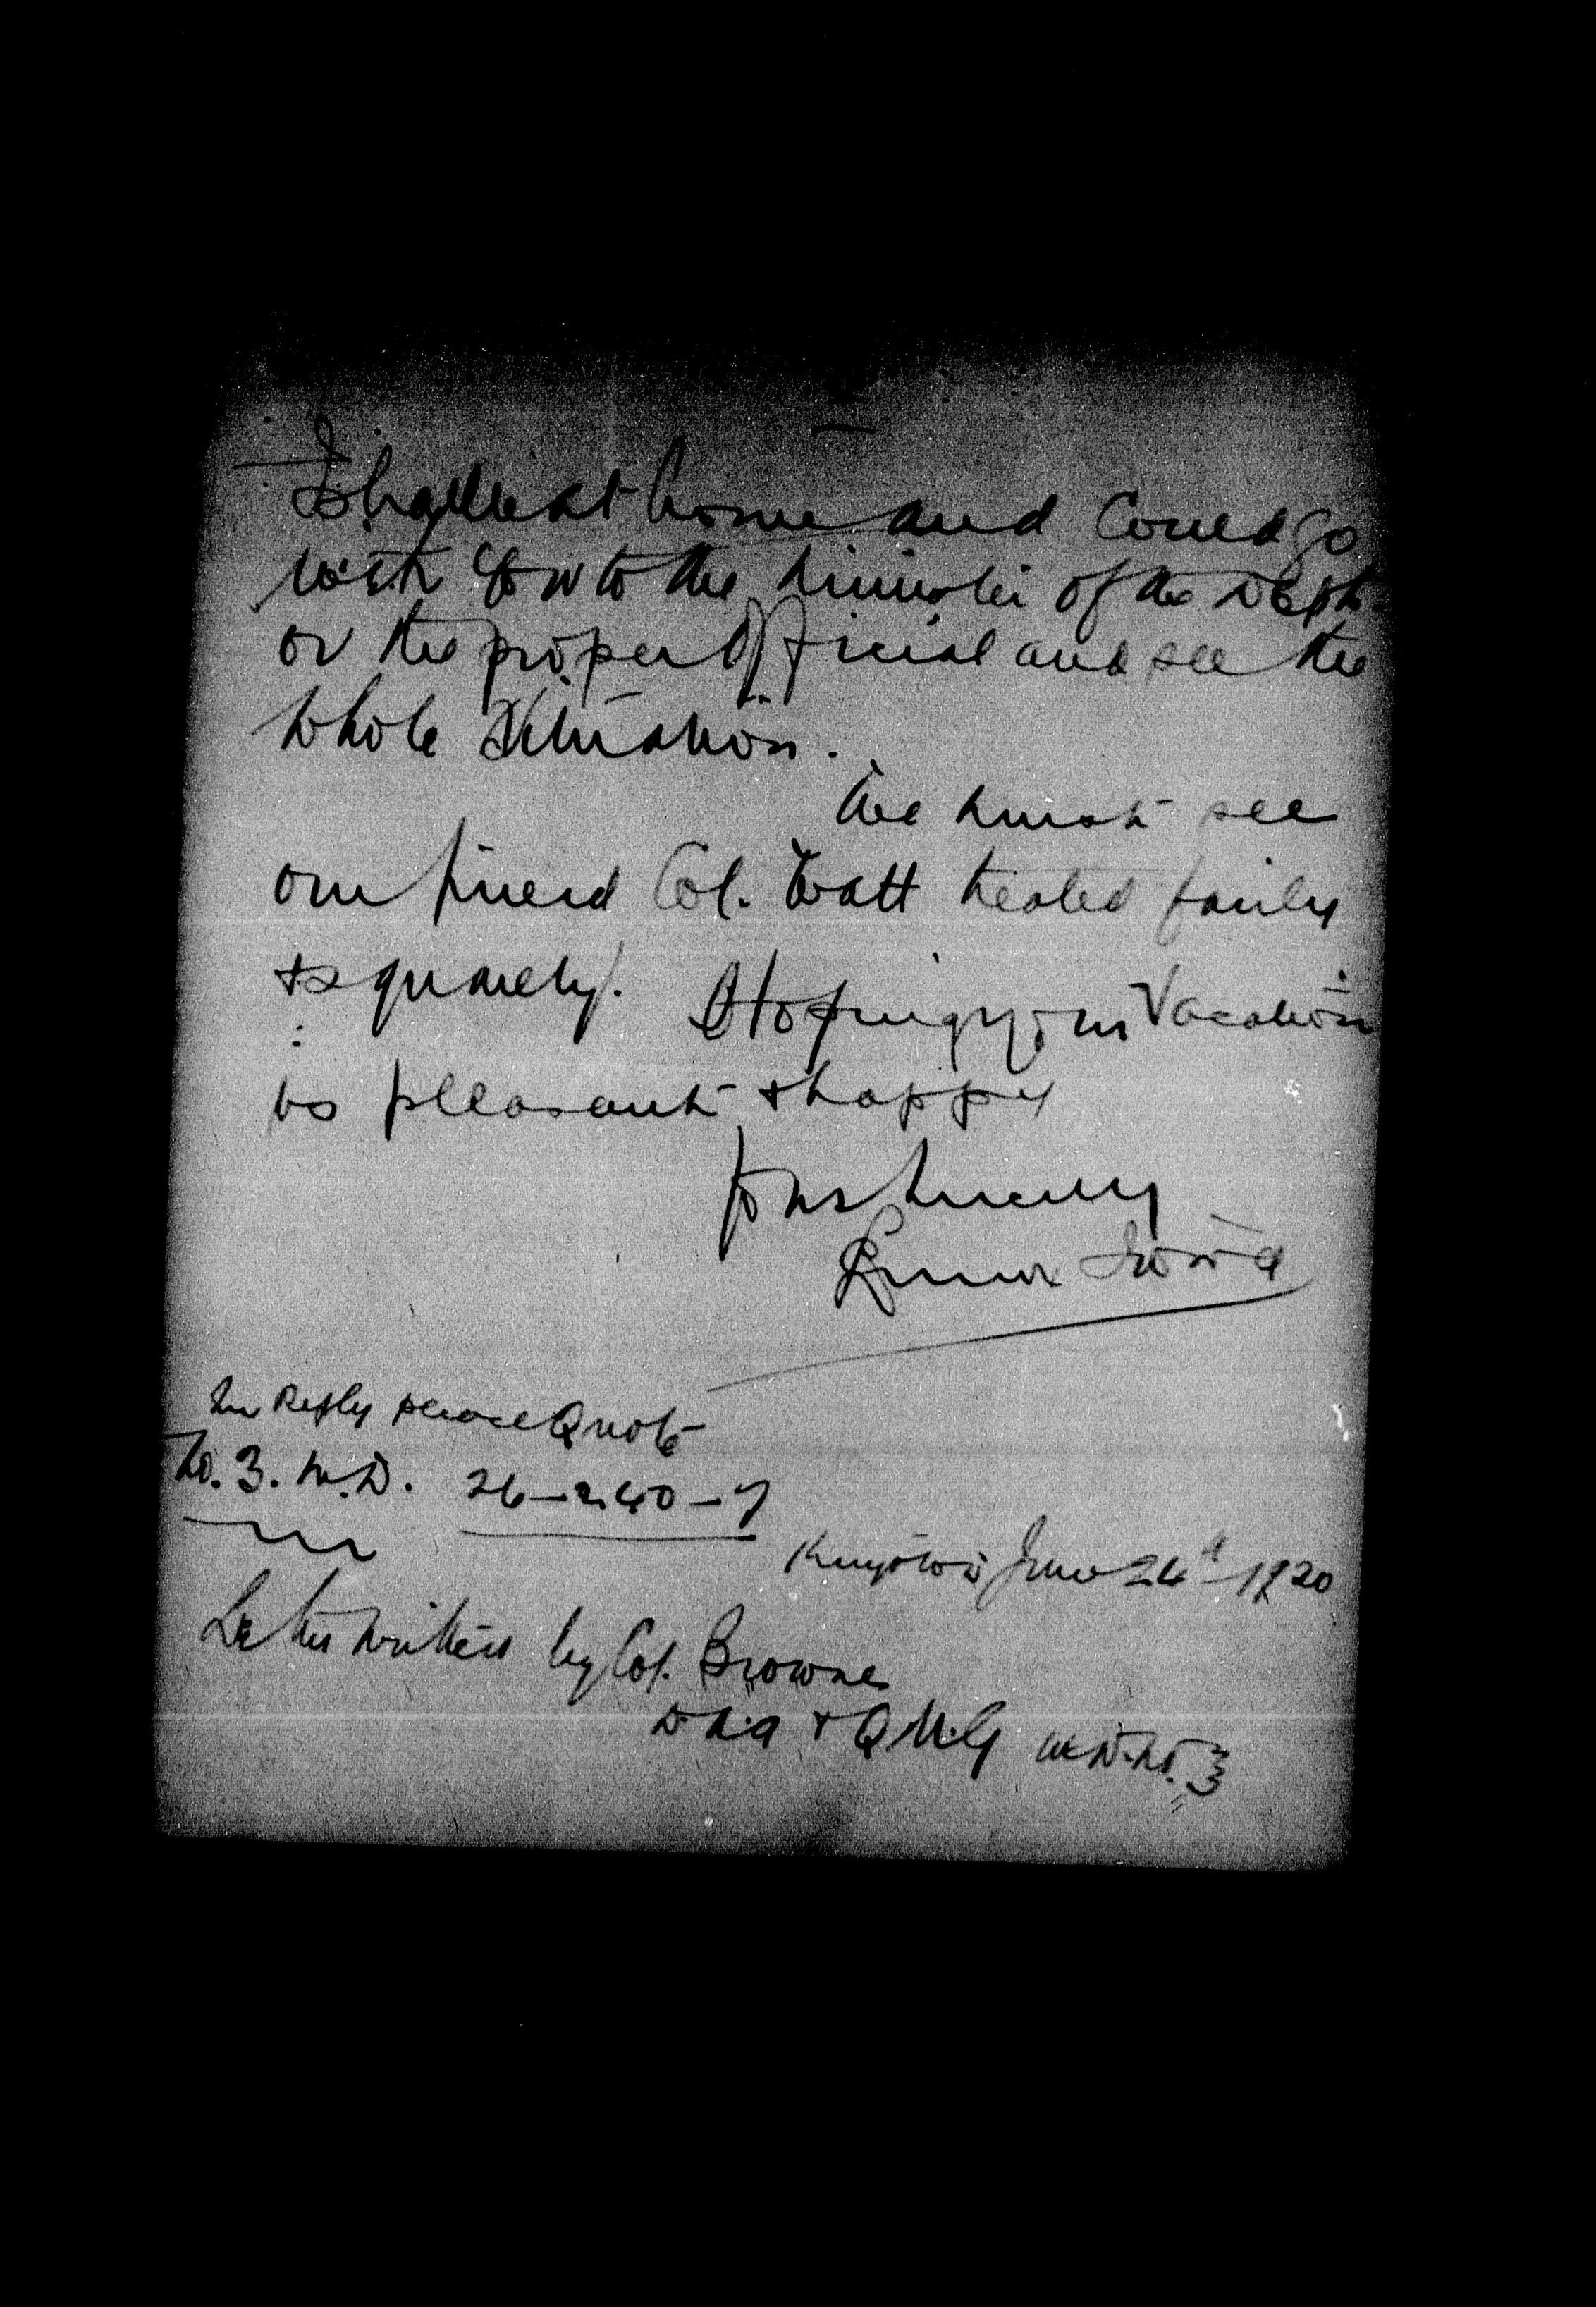 I shall be at home and Could go
with you to the Minister of the Dept.
or the proper Official and see the
whole Situation.
We must see
our friend Col. Watt treated fairly
& squarely. Hoping your Vacation
is pleasant & happy
Yours truly
Irwin
In Reply please Quote
No. 3. M.D. 26-2.40-7
Kingston June 24th 1920
Letter written by Col. Browne
D.A.A & Q.M.G M.D. No. 3